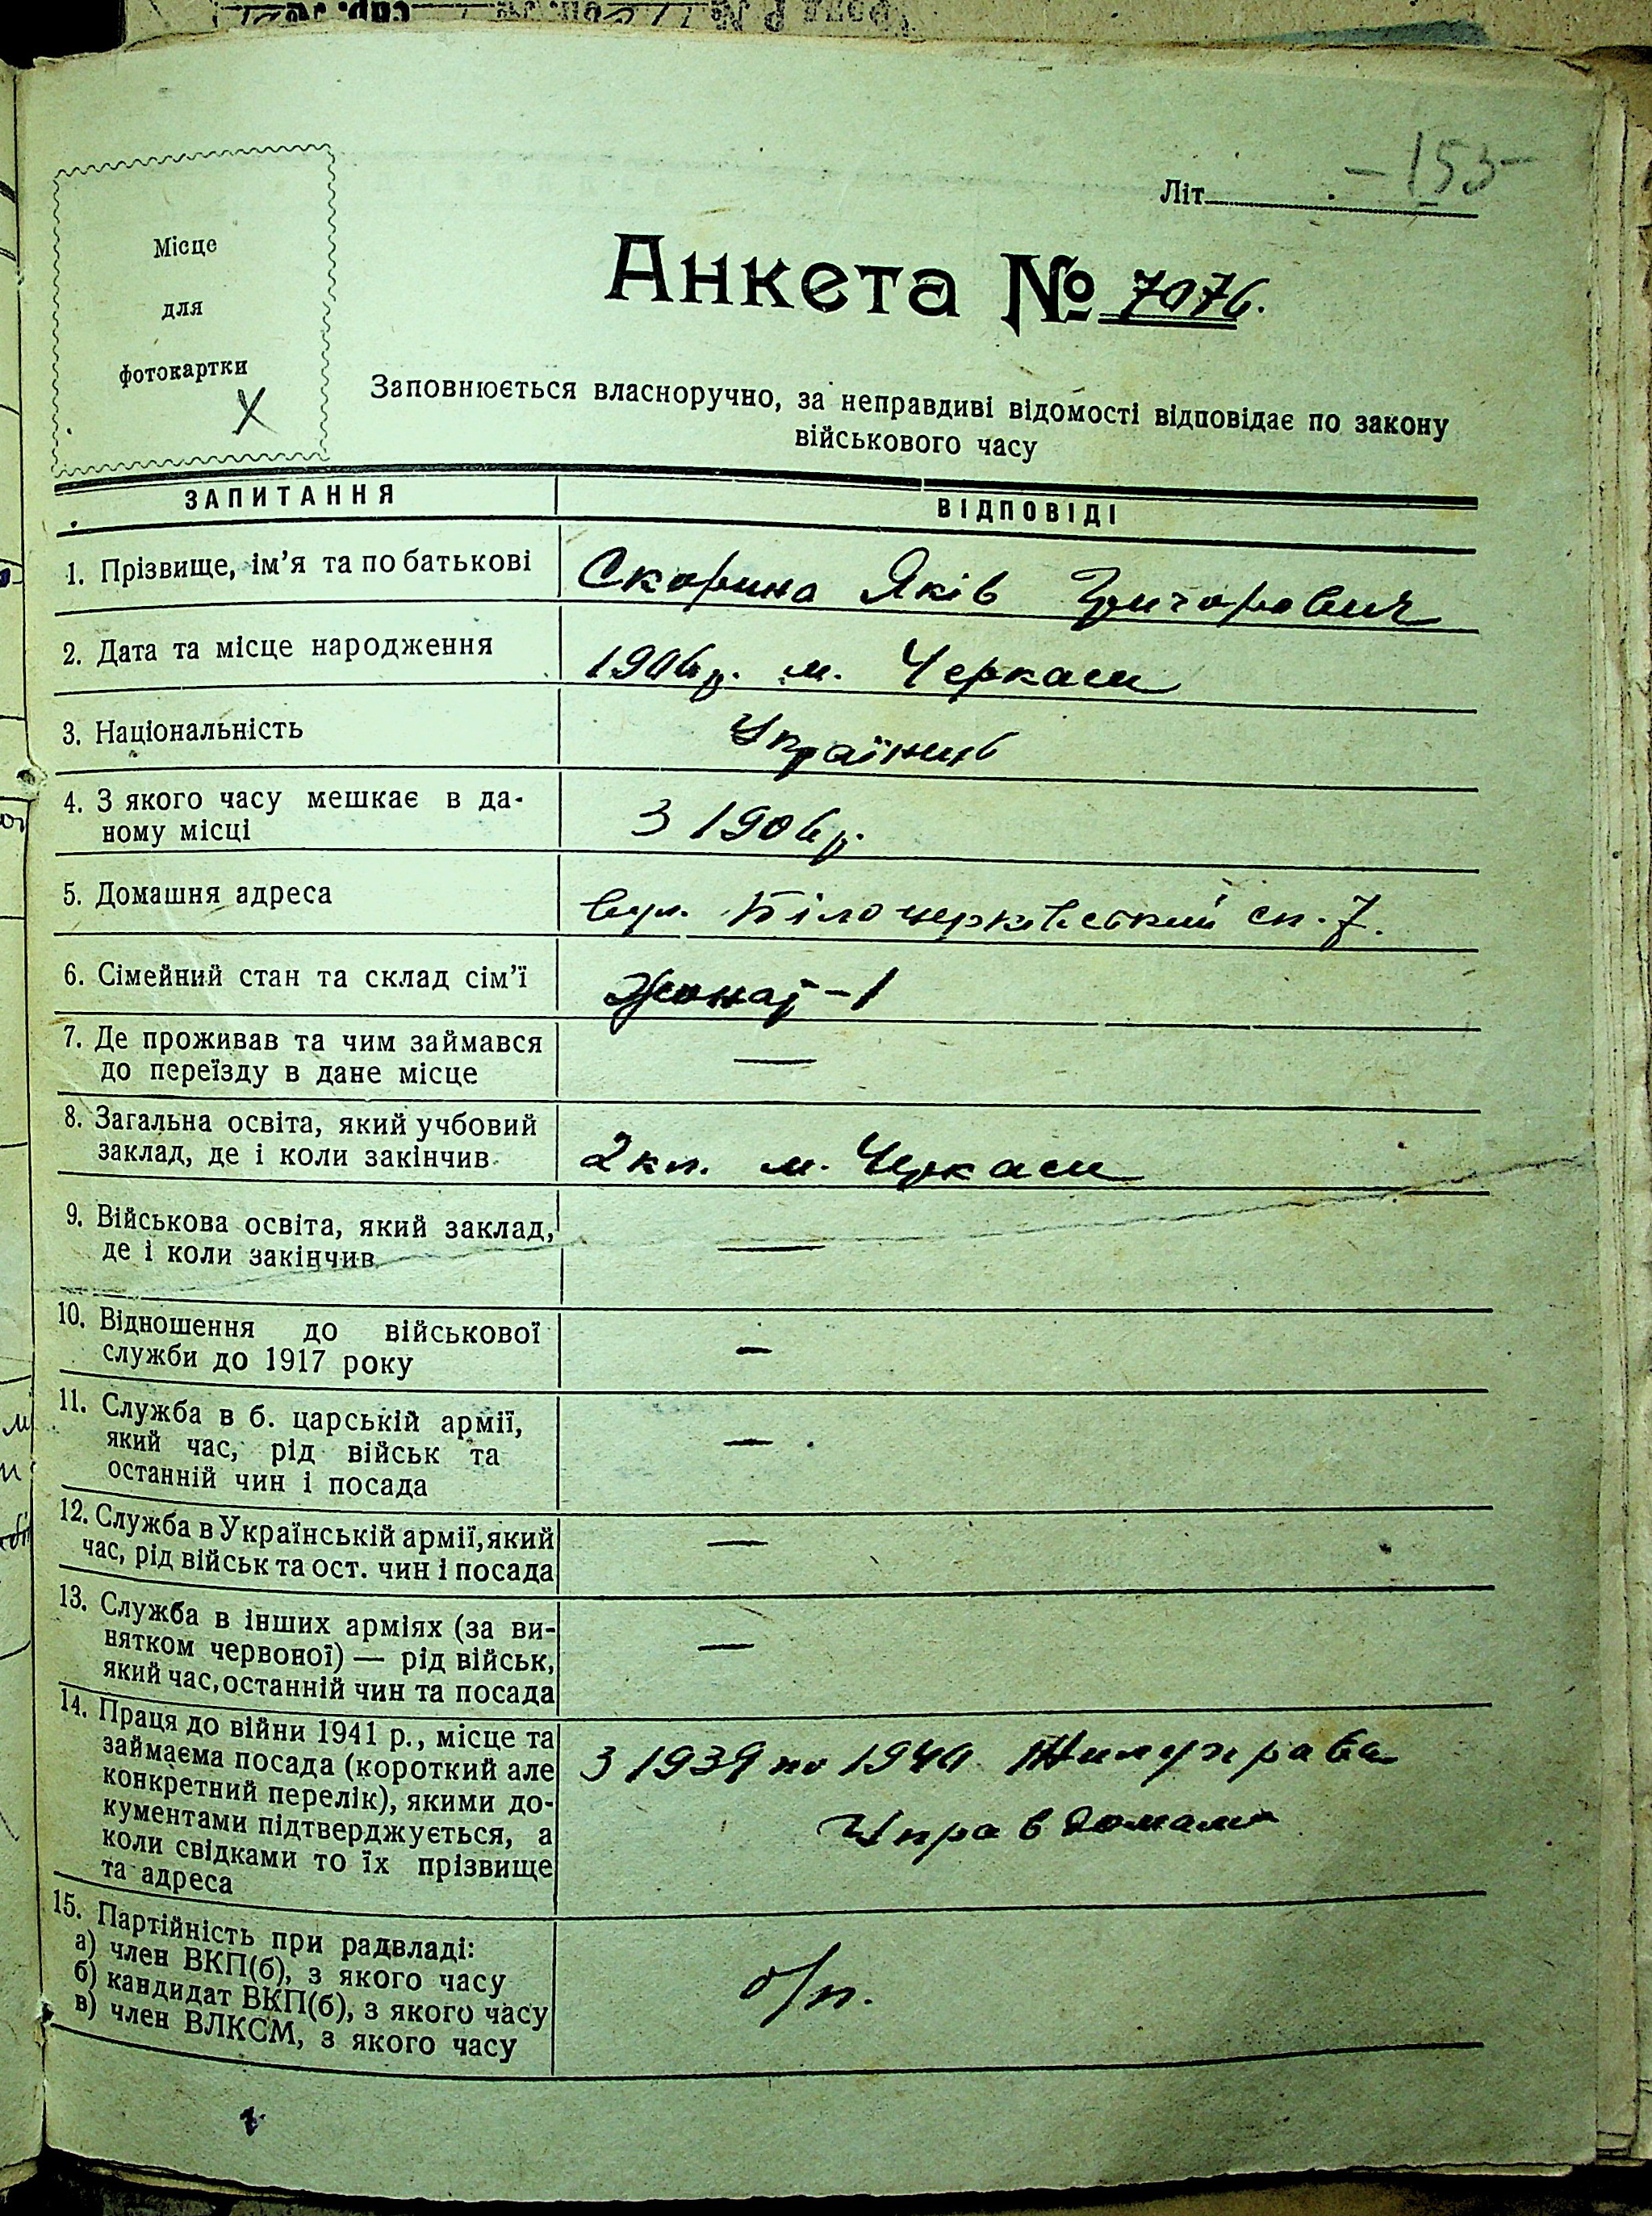 Літ. -155-
Місце
для
фотокартки
X
Анкета № 7076.
Заповнюється власноручно, за неправдиві відомості відповідає по закону
військового часу
ЗАПИТАННЯ ВІДПОВІДІ
1. Прізвище, ім’я та по батькові Скорина Яків Григорович
2. Дата та місце народження 1906 р. м. Черкаси
3. Національність Українець
4. З якого часу мешкає в да-
ному місці З 1906 р.
5. Домашня адреса вул. Білоцерківський сп. 7.
6. Сімейний стан та склад сім’ї Жонат - 1
7. Де проживав та чим займався
до переїзду в дане місце —
8. Загальна освіта, який учбовий
заклад, де і коли закінчив 2 кл. м. Черкаси
9. Військова освіта, який заклад,
де і коли закінчив —
10. Відношення до військової
служби до 1917 року —
11. Служба в б. царській армії,
який час, рід військ та
останній чин і посада —
12. Служба в Українській армії, який
час, рід військ та ост. чин і посада —
13. Служба в інших арміях (за ви-
нятком червоної) — рід військ,
який час, останній чин та посада —
14. Праця до війни 1941 р., місце та
займаєма посада (короткий але
конкретний перелік), якими до-
кументами підтверджується, а
коли свідками то їх прізвище
та адреса
З 1939 по Жилуправа
Управдомами
15. Партійність при радвладі:
а) член ВКП(б), з якого часу
б) кандидат ВКП(б), з якого часу
в) член ВЛКСМ, з якого часу
б/п.